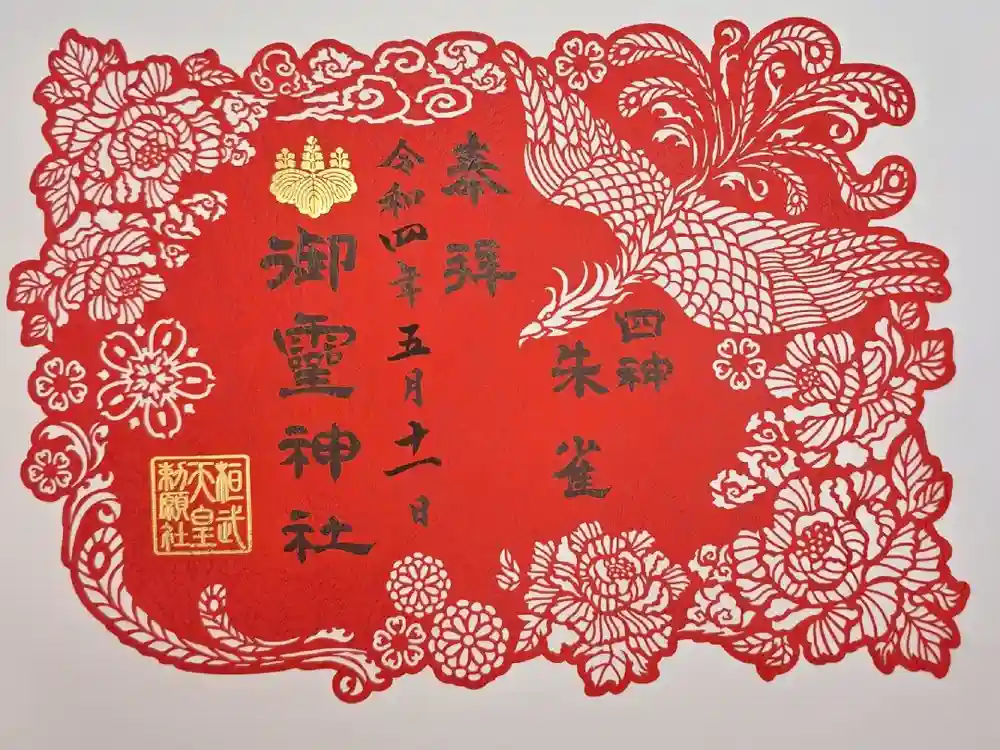 四神
朱雀
奉拝
令和四年五月十一日
御靈神社
桓武
天皇
勅願社